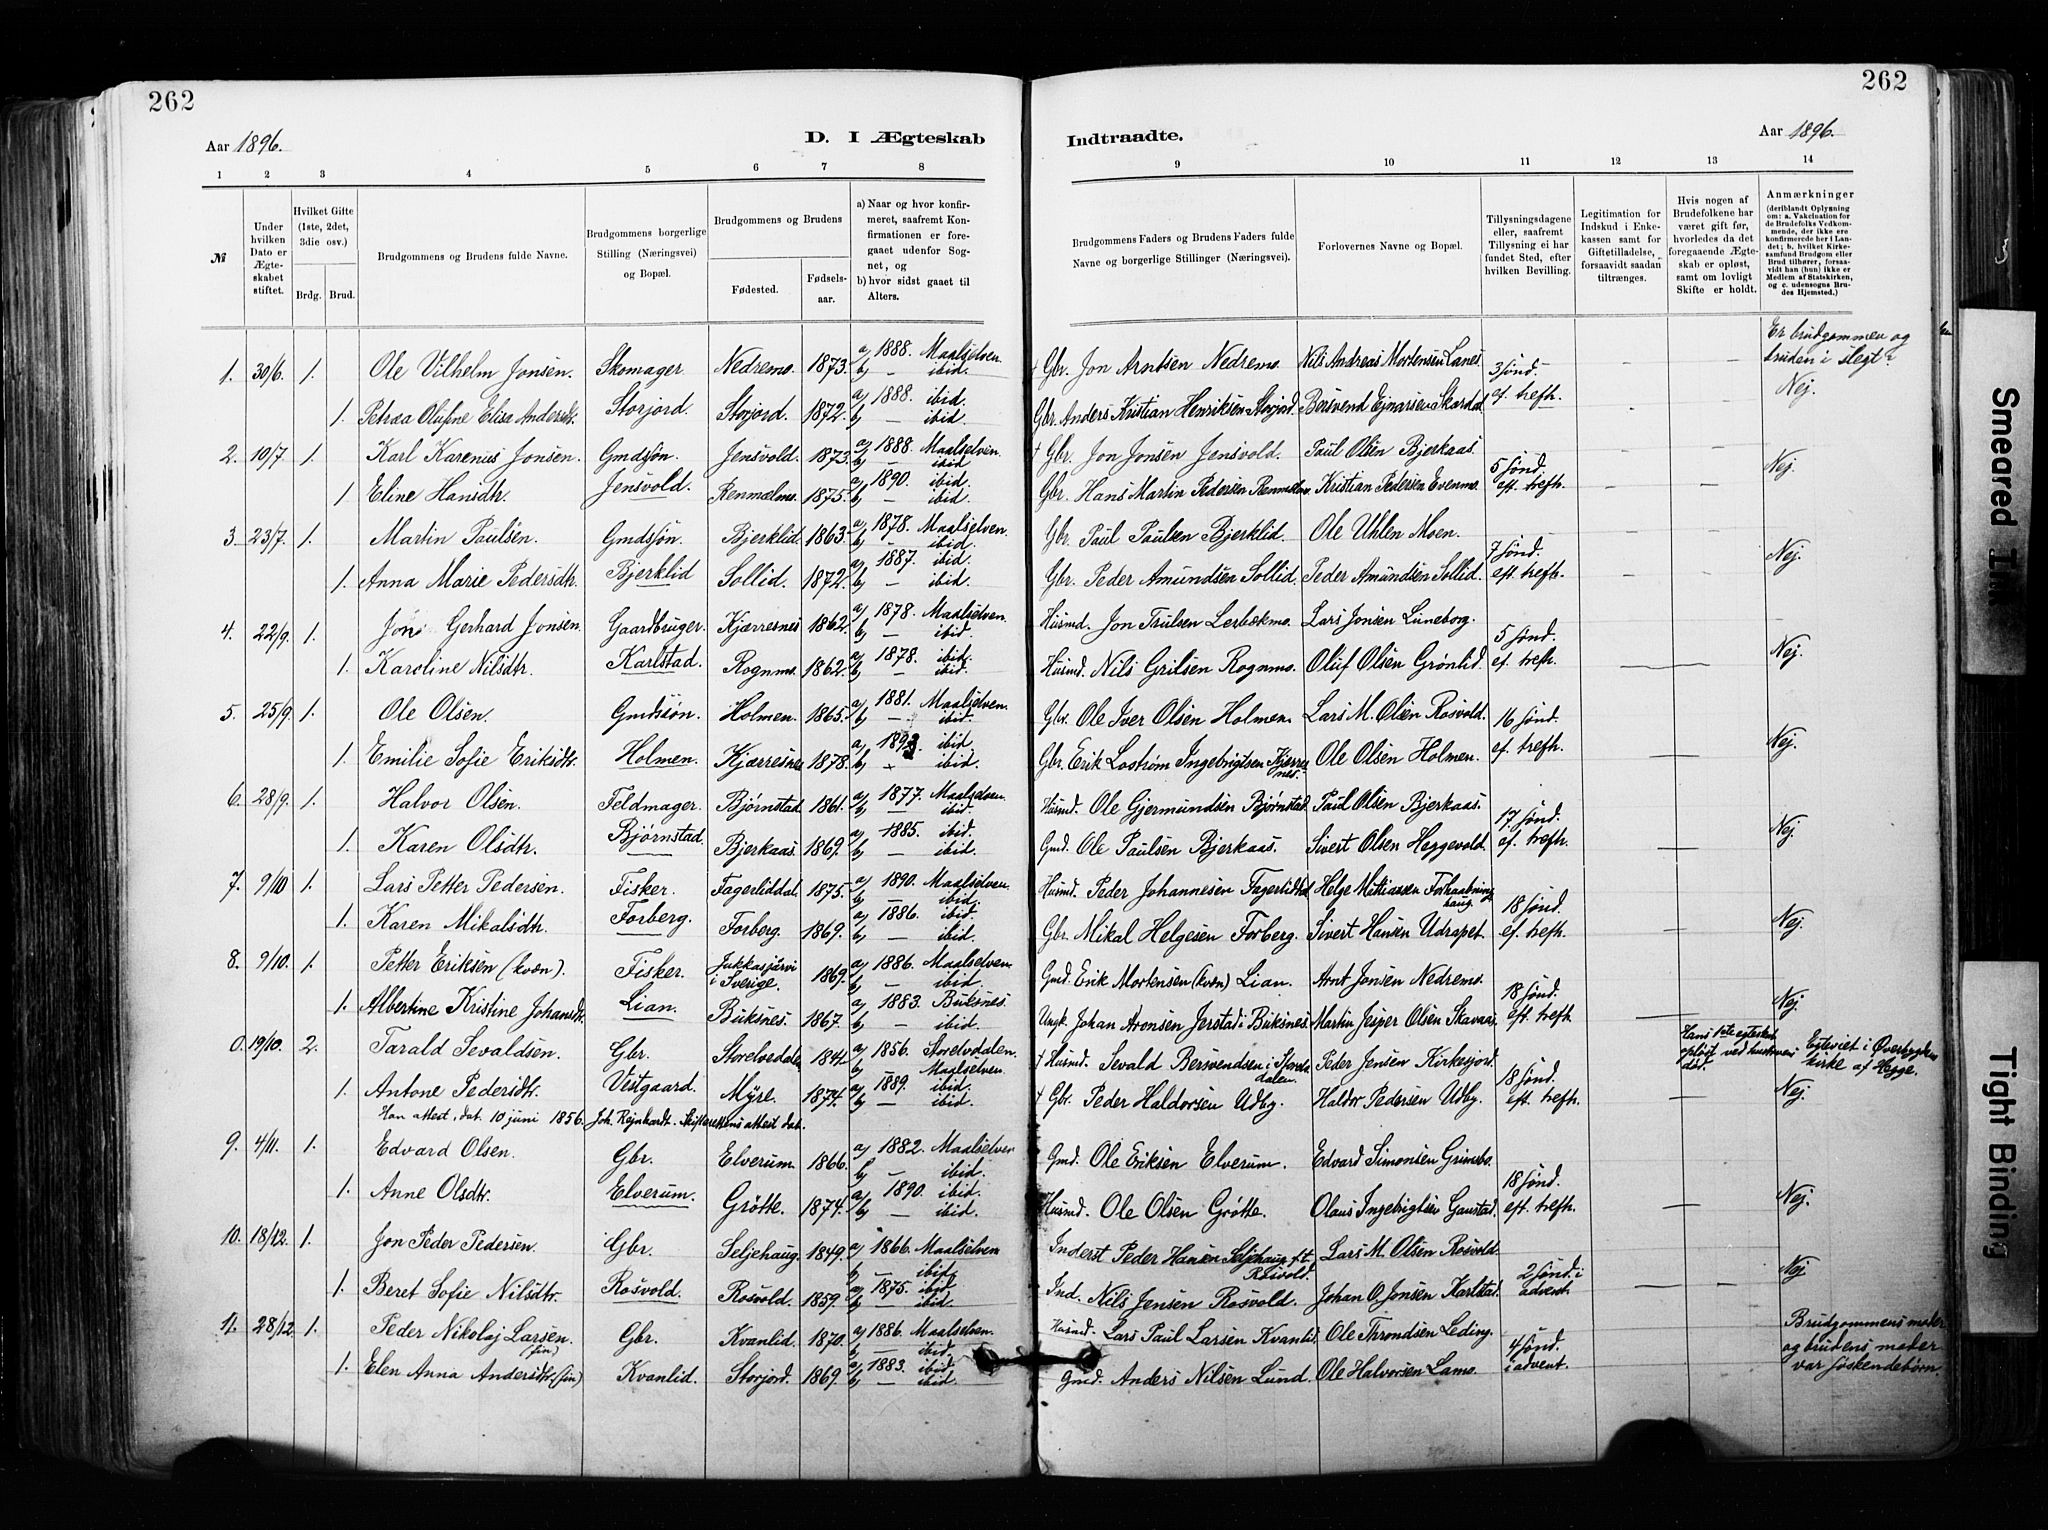 262
262
Aar 1896.
D. I Ægteskab
Indtraadte.
Aar 1896.
1 2 3 4 5 6 7 8 9 10 11 12 13 14
№
Under hvilken Dato er Ægteskabet stiftet.
Hvilket Gifte (1ste, 2det, 3die osv.)
Brdg. Brud.
Brudgommens og Brudens fulde Navne.
Brudgommens borgerlige Stilling (Næringsvei) og Bopæl.
Brudgommens og Brudens
Fødested.
Fødselsaar.
a) Naar og hvor konfirmeret, saafremt Konfirmationen er foregaaet udenfor Sognet, og
b) hvor sidst gaaet til Alters.
Brudgommens Faders og Brudens Faders fulde Navne og borgerlige Stillinger (Næringsvei).
Forlovernes Navne og Bopæl.
Tillysningsdagene eller, saafremt Tillysning ei har fundet Sted, efter hvilken Bevilling.
Legitimation for Indskud i Enkekassen samt for Giftetilladelse, forsaavidt saadan tiltrænges.
Hvis nogen af Brudefolkene har været gift før, hvorledes da det foregaaende Ægteskab er opløst, samt om lovligt Skifte er holdt.
Anmærkninger (deriblandt Oplysning om: a. Vakcination for de Brudefolks Vedkommende, der ikke ere konfirmerede her i Landet; b. hvilket Kirkesamfund Brudgom eller Brud tilhører, forsaavidt han (hun) ikke er Medlem af Statskirken, og c. udensogns Brudes Hjemsted.)
1. 30/6. 1. Ole Vilhelm Jonsen. Skomager Nedremo. 1873. a) 1888. Maalselven b) — ibid. † Gbr. Jon Arntsen Nedremo. Nils Andreas Mortensen Lanes 3 sønd. ef. trefh. Er brudgommen og bruden i slegt?
1. Petraa Olufine Elisa Andersdtr. Storjord. Storjord. 1872. a) 1888. ibid. b) — ibid. Gbr. Anders Kristian Henriksen Storjord. Bersvend Ejnarsen Skardal Nej.
2. 10/7 1. Karl Karenus Jonsen. Gmdsøn. Jensvold. 1873. a) 1888. Maalselven. b) — ibid † Gbr. Jon Jonsen Jensvold. Paul Olsen Bjerkaas. 5 sønd. eft. trefh.
1 Eline Hansdtr. Jensvold. Renmælmo. 1875. a) 1890. ibid. b) — ibid. Gbr. Hans Martin Pedersen Renmælmo. Kristian Pedersen Evenmo. Nej.
3. 23/7. 1. Martin Paulsen. Gmdsøn. Bjerklid. 1863. a) 1878. Maalselven b) — ibid. Gbr. Paul Paulsen Bjerklid. Ole Uhlen Moen. 7 sønd. eft. trefh.
1. Anna Marie Pedersdtr. Bjerklid Sollid. 1872. a) 1887. ibid. b) — ibid. Gbr. Peder Amundsen Sollid. Peder Amundsen Sollid. Nej.
4. 22/9. 1. Jon Gerhard Jonsen. Gaardbruger. Kjærresnes 1862. a) 1878. Maalselven. b) — ibid. Husmd. Jon Trulsen Lerbækmo. Lars Jonsen Luneborg. 5 sønd. ef. trefh.
1. Karoline Nilsdtr. Karlstad. Rognmo. 1862. a) 1878. ibid. b) — ibid. Husmd. Nils Grilsen Rognmo. Oluf Olsen Grønlid. Nej.
5. 25/9. 1. Ole Olsen. Gmdssøn. Holmen. 1865. a) 1881. Maalselven. b) — ibid. Gbr. Ole Iver Olsen Holmen. Lars M. Olsen Rosvold. 16 sønd. ef. trefh.
1. Emilie Sofie Eriksdtr. Holmen. Kjærresnes 1878. a) 1893. ibid. b) — ibid. Gbr. Erik Lostrøm Ingebrigtsen Kjerresnes. Ole Olsen Holmen. Nej.
6. 28/9. 1. Halvor Olsen. Feldmager. Bjørnstad. 1861. a) 1877. Maalselven b) — ibid. Husmd. Ole Gjermundsen Bjørnstad. Paul Olsen Bjerkaas. 17 sønd. ef. trefh.
1. Karen Olsdtr. Bjørnstad. Bjerkaas. 1869. a) 1885. ibid. b) — ibid. Gmd. Ole Paulsen Bjerkaas. Sivert Olsen Heggevold. Nej.
7. 9/10 1. Lars Petter Pedersen. Fisker. Fagerliddal. 1875. a) 1890. Maalselven. b) — ibid. Husmd. Peder Johannesen Fagerlidal Helge Mathiassen Forhaabninghaug. 18 sønd. ef. trefh.
1. Karen Mikalsdtr. Forberg. Forberg. 1869. a) 1886. ibid. b) — ibid. Gbr. Mikal Helgesen Forberg. Sivert Hansen Udrapet. Nej.
8. 9/10. 1. Petter Eriksen (kvæn). Fisker. Jukkasjärvi i Sverige. 1869. a) 1886. Maalselven b) — ibid. Gmd. Erik Mortensen (kvæn) Lian. Arnt Jonsen Nedremo. 18 sønd. eft. trefh.
1. Albertine Kristine Johansdtr. Lian. Buksnes. 1867. a) 1883. Buksnes. b) — ibid. Ungk. Johan Aronsen Jerstad i Buksnes. Martin Jesper Olsen Skavaas. Nej.
0. 19/10. 2. Tarald Sevaldsen. Gbr. Storelvedalen 1841. a) 1856. Storelvdalen. b) Maalselven. † Husmd. Sevald Bersvendsen i Storelvdalen. Peder Jensen Kirkesjord. 18 sønd. eft. trefh. Hans 1ste egteskab opløst ved hustruens død. Egteviet i Øverbygden kirke af Hegge.
1. Antone Pedersdtr. Vestgaard. Myre. 1874. a) 1889. ibid. b) — ibid. † Gbr. Peder Haldorsen Udby. Haldor Pedersen Udby. Nej.
Han attest. dat. 10 juni 1856. Joh. Rejnhardt. Skifterettens attest dat.
9. 4/11. 1. Edvard Olsen. Gbr. Elverum. 1866. a) 1882. Maalselven b) — ibid. Gmd. Ole Eriksen Elverum. Edvard Simonsen Grimsbo. 18 sønd. eft. trefh.
1. Anne Olsdtr. Elverum. Grötte. 1874. a) 1890. ibid. b) — ibid. Husmd. Ole Olsen Grötte. Olaus Ingebrigtsen Gaustad. Nej.
10. 18/12. 1. Jon Peder Pedersen. Gbr. Seljehaug. 1849. a) 1866. Maalselven b) — ibid. Inderst Peder Hansen Seljehaug f.t. Rosvold. Lars M. Olsen Rosvold. 2 sønd. i advent.
1. Beret Sofie Nilsdtr. Rosvold. Rosvold. 1859. a) 1875. ibid. b) — ibid. Ind. Nils Jensen Rosvold. Johan O. Jonsen Karlstad. Nej
11. 28/12 1. Peder Nikolaj Larsen. (fin) Gbr. Kvanlid. 1870. a) 1886. Maalselven. b) — ibid. Husmd. Lars Paul Larsen Kvanlid. Ole Throndsen Leding. 4 sønd. i advent. Brudgommens moder og brudens moder var søskendebørn.
1. Elen Anna Andersdtr. (fin) Kvanlid. Storjord. 1869. a) 1883. ibid. b) — ibid. Gmd. Anders Nilsen Lund. Ole Halvorsen Lamo.
Smeared Ink
Tight Binding